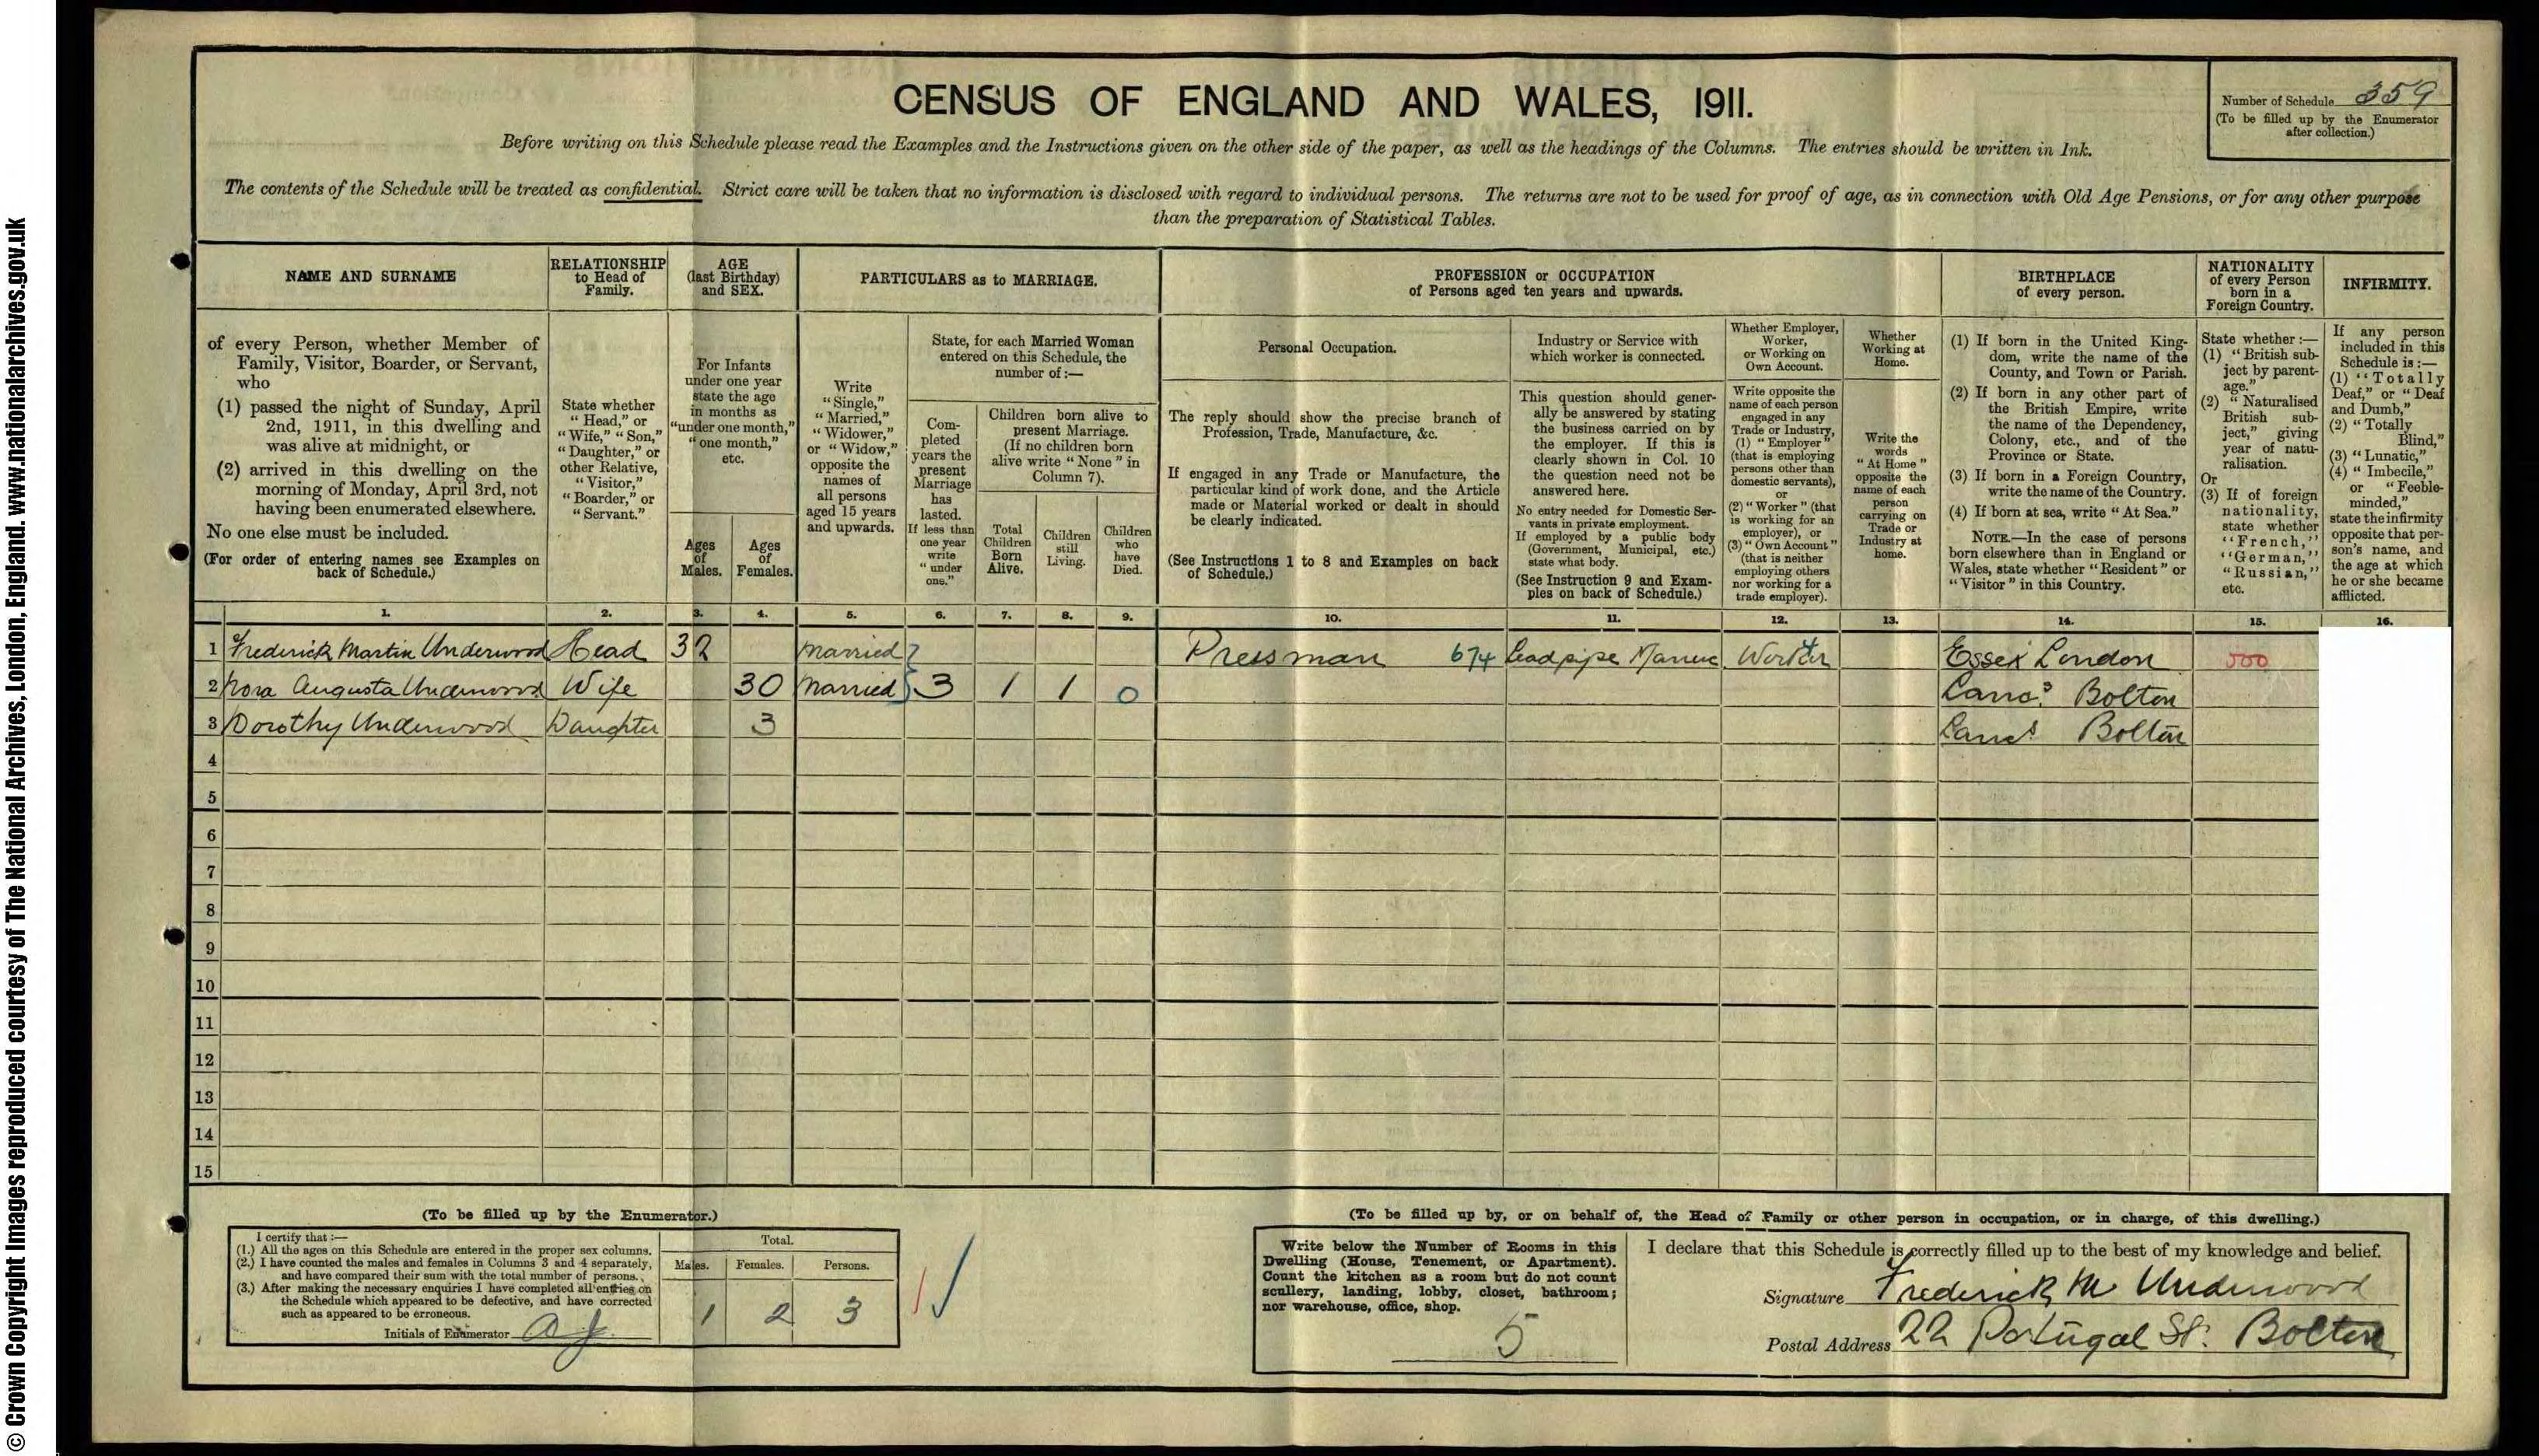 © Crown Copyright Images reproduced courtesy of The National Archives, London, England. www.nationalarchives.gov.uk
CENSUS OF ENGLAND AND WALES, 1911.
Number of Schedule 359
(To be filled up by the Enumerator
after collection.)
Before writing on this Schedule please read the Examples and the Instructions given on the other side of the paper, as well as the headings of the Columns. The entries should be written in Ink.
The contents of the Schedule will be treated as confidential. Strict care will be taken that no information is disclosed with regard to individual persons. The returns are not to be used for proof of age, as in connection with Old Age Pensions, or for any other purpose
than the preparation of Statistical Tables.
NAME AND SURNAME
of every Person, whether Member of
Family, Visitor, Boarder, or Servant,
who
(1) passed the night of Sunday, April
2nd, 1911, in this dwelling and
was alive at midnight, or
(2) arrived in this dwelling on the
morning of Monday, April 3rd, not
having been enumerated elsewhere.
No one else must be included.
(For order of entering names see Examples on
back of Schedule.)
RELATIONSHIP
to Head of
Family.
State whether
"Head," or
"Wife," "Son,"
"Daughter," or
other Relative,
"Visitor,"
"Boarder," or
"Servant."
AGE
(last Birthday)
and SEX.
For Infants
under one year
state the age
in months as
"under one month,"
"one month,"
etc.
Ages
of
Males.
Ages
of
Females.
PARTICULARS as to MARRIAGE.
Write
"Single,"
"Married,"
"Widower,"
or "Widow,"
opposite the
names of
all persons
aged 15 years
and upwards.
State, for each Married Woman
entered on this Schedule, the
number of:—
Com-
pleted
years the
present
Marriage
has
lasted.
If less than
one year
write
"under
one."
Children born alive to
present Marriage.
(If no children born
alive write "None" in
Column 7).
Total
Children
Born
Alive.
Children
still
Living.
Children
who
have
Died.
PROFESSION or OCCUPATION
of Persons aged ten years and upwards.
Personal Occupation.
The reply should show the precise branch of
Profession, Trade, Manufacture, &c.
If engaged in any Trade or Manufacture, the
particular kind of work done, and the Article
made or Material worked or dealt in should
be clearly indicated.
(See Instructions 1 to 8 and Examples on back
of Schedule.)
Industry or Service with
which worker is connected.
This question should gener-
ally be answered by stating
the business carried on by
the employer. If this is
clearly shown in Col. 10
the question need not be
answered here.
No entry needed for Domestic Ser-
vants in private employment.
If employed by a public body
(Government, Municipal, etc.)
state what body.
(See Instruction 9 and Exam-
ples on back of Schedule.)
Whether Employer,
Worker,
or Working on
Own Account.
Write opposite the
name of each person
engaged in any
Trade or Industry,
(1) "Employer"
(that is employing
persons other than
domestic servants),
or
(2) "Worker" (that
is working for an
employer), or
(3) "Own Account"
(that is neither
employing others
nor working for a
trade employer).
Whether
Working at
Home.
Write the
words
"At Home"
opposite the
name of each
person
carrying on
Trade or
Industry at
home.
BIRTHPLACE
of every person.
(1) If born in the United King-
dom, write the name of the
County, and Town or Parish.
(2) If born in any other part of
the British Empire, write
the name of the Dependency,
Colony, etc., and of the
Province or State.
(3) If born in a Foreign Country,
write the name of the Country.
(4) If born at sea, write "At Sea."
NOTE.—In the case of persons
born elsewhere than in England or
Wales, state whether "Resident" or
"Visitor" in this Country.
NATIONALITY
of every Person
born in a
Foreign Country.
State whether:—
(1) "British sub-
ject by parent-
age."
(2) "Naturalised
British sub-
ject," giving
year of natu-
ralisation.
Or
(3) If of foreign
nationality,
state whether
"French,"
"German,"
"Russian,"
etc.
INFIRMITY.
If any person
included in this
Schedule is:—
(1) "Totally
Deaf," or "Deaf
and Dumb,"
(2) "Totally
Blind,"
(3) "Lunatic,"
(4) "Imbecile,"
or "Feeble-
minded,"
state the infirmity
opposite that per-
son's name, and
the age at which
he or she became
afflicted.
1. 2. 3. 4. 5. 6. 7. 8. 9. 10. 11. 12. 13. 14. 15. 16.
1 Frederick Martin Underwood Head 32 Married Pressman 674 Leadpipe Worker Essex London 500
2 Nora Augusta Underwood Wife 30 Married 3 1 1 0 Lancs Bolton
3 Dorothy Underwood Daughter 3 Lancs Bolton
4
5
6
7
8
9
10
11
12
13
14
15
(To be filled up by the Enumerator.)
I certify that:—
(1.) All the ages on this Schedule are entered in the proper sex columns.
(2.) I have counted the males and females in Columns 3 and 4 separately,
and have compared their sum with the total number of persons.
(3.) After making the necessary enquiries I have completed all entries on
the Schedule which appeared to be defective, and have corrected
such as appeared to be erroneous.
Initials of Enumerator
Total.
Males. Females. Persons.
1 2 3
(To be filled up by, or on behalf of, the Head of Family or other person in occupation, or in charge, of this dwelling.)
Write below the Number of Rooms in this
Dwelling (House, Tenement, or Apartment).
Count the kitchen as a room but do not count
scullery, landing, lobby, closet, bathroom;
nor warehouse, office, shop.
5
I declare that this Schedule is correctly filled up to the best of my knowledge and belief.
Signature Frederick M Underwood
Postal Address 22 Portugal St. Bolton